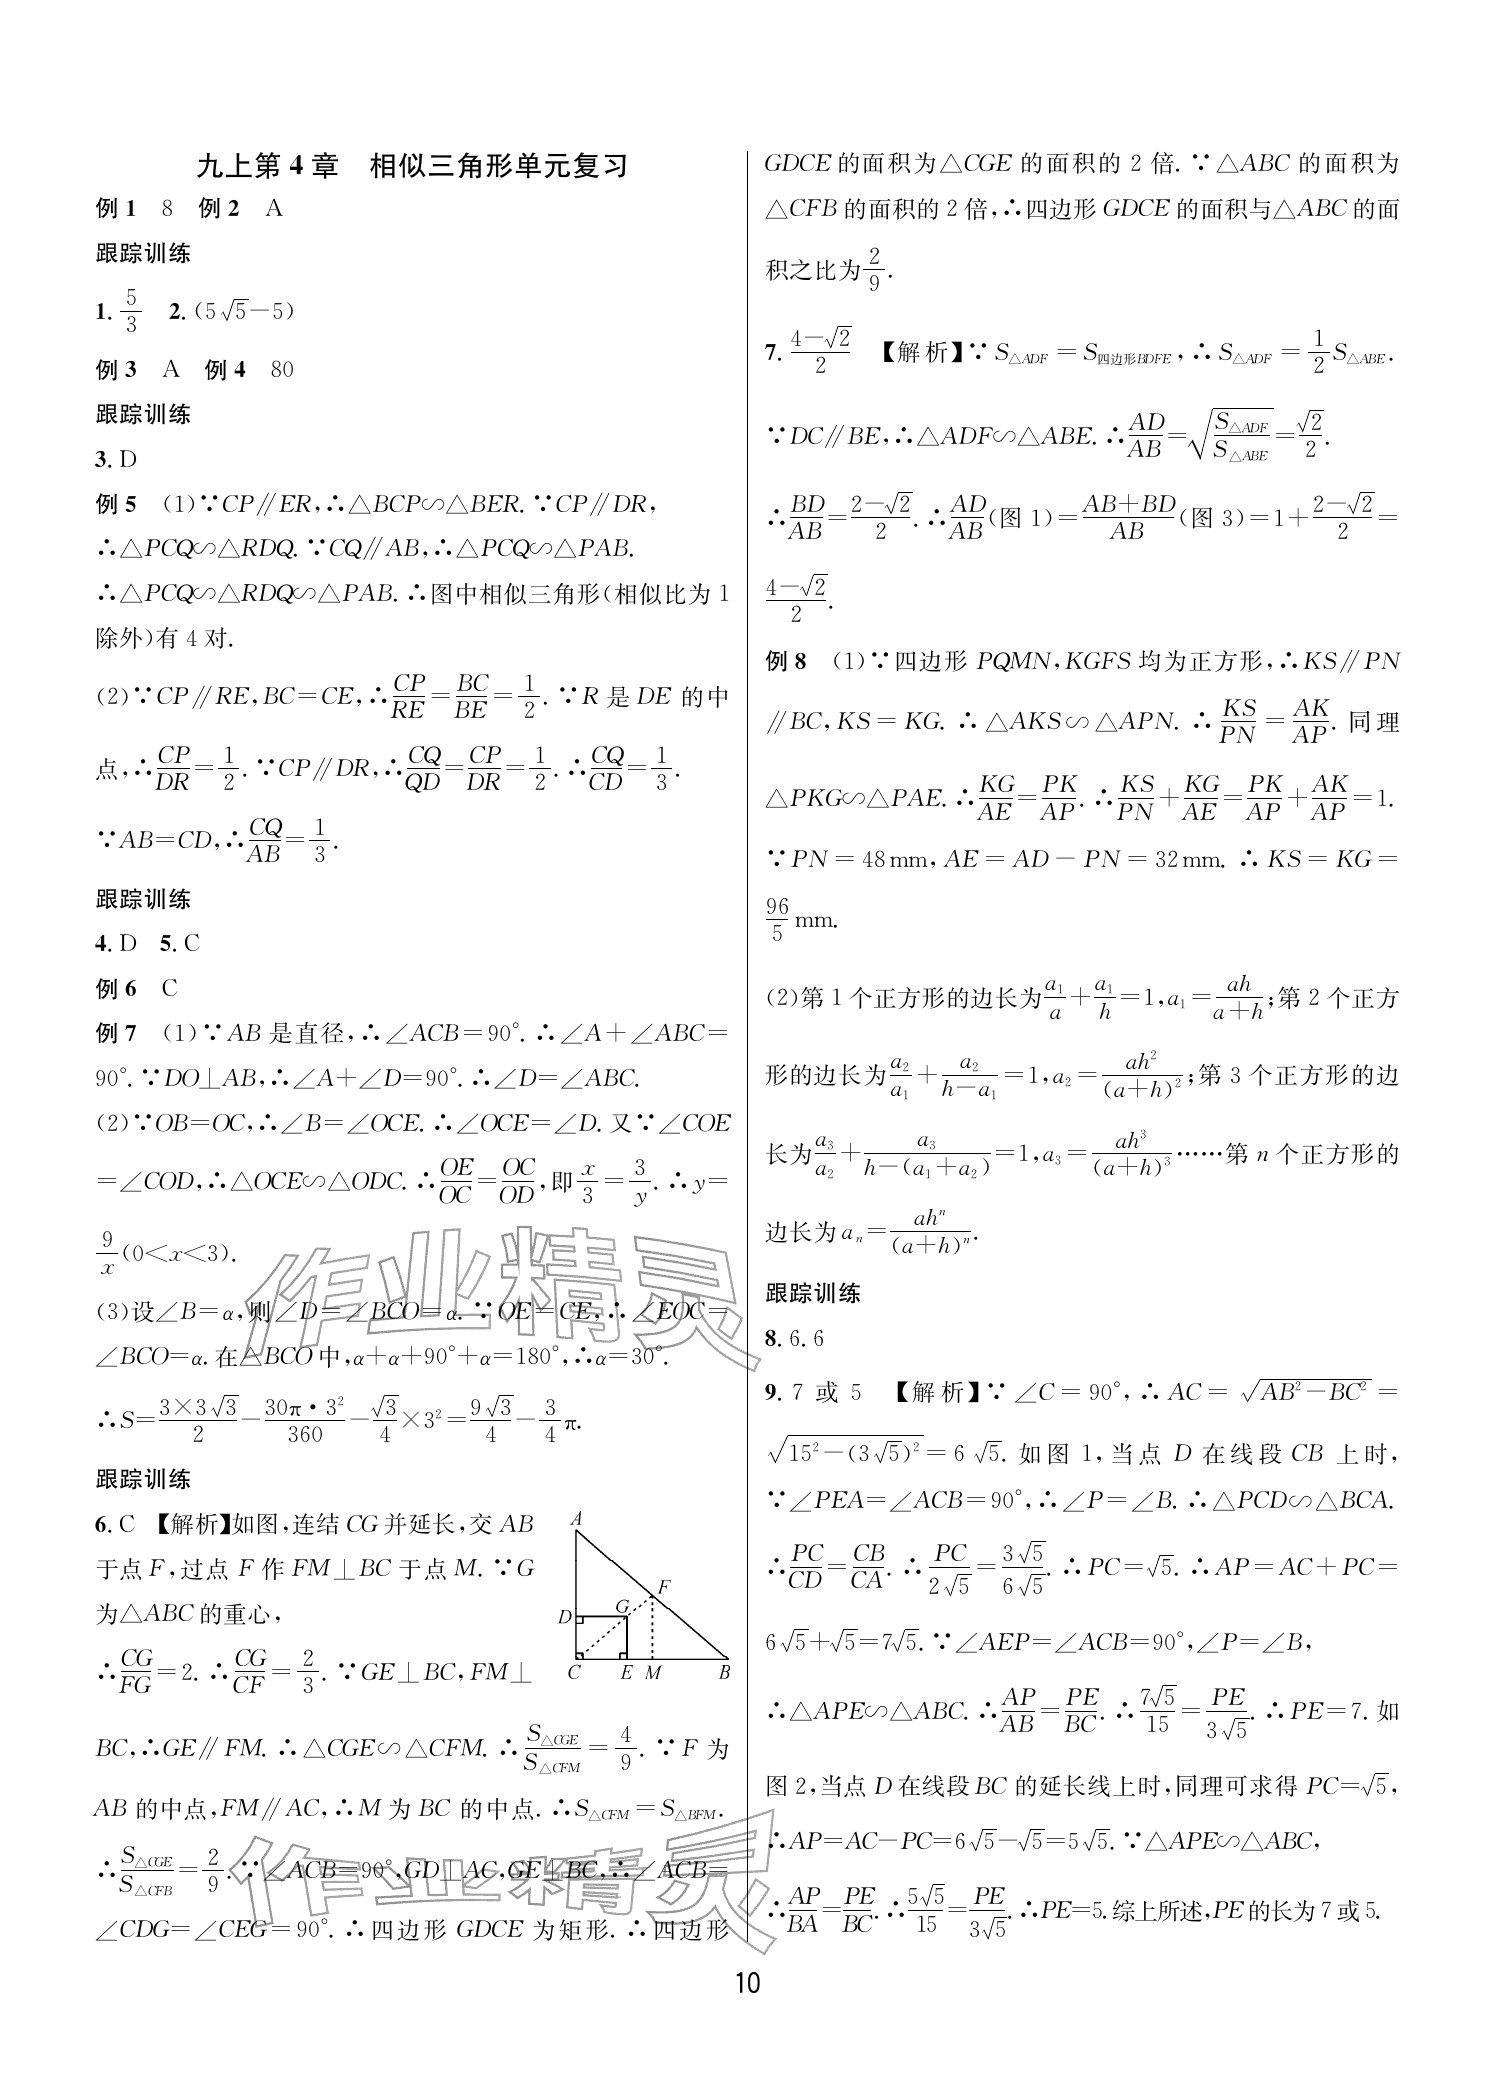 九上第4章 相似三角形单元复习
例1 8 例2 A
跟踪训练
1. 5/3 2. (5√5-5)
例3 A 例4 80
跟踪训练
3. D
例5 (1)∵CP∥ER,∴△BCP∽△BER.∵CP∥DR,
∴△PCQ∽△RDQ.∵CQ∥AB,∴△PCQ∽△PAB.
∴△PCQ∽△RDQ∽△PAB.∴图中相似三角形(相似比为1
除外)有4对.
(2)∵CP∥RE,BC=CE,∴CP/RE=BC/BE=1/2.∵R是DE的中
点,∴CP/DR=1/2.∵CP∥DR,∴CQ/QD=CP/DR=1/2.∴CQ/CD=1/3.
∵AB=CD,∴CQ/AB=1/3.
跟踪训练
4. D 5. C
例6 C
例7 (1)∵AB是直径,∴∠ACB=90°.∴∠A+∠ABC=
90°.∵DO⊥AB,∴∠A+∠D=90°.∴∠D=∠ABC.
(2)∵OB=OC,∴∠B=∠OCE.∴∠OCE=∠D.又∵∠COE
=∠COD,∴△OCE∽△ODC.∴OE/OC=OC/OD,即x/3=3/y.∴y=
9/x(0<x<3).
(3)设∠B=α,则∠D=∠BCO=α.∵OE=CE,∴∠EOC=
∠BCO=α.在△BCO中,α+α+90°+α=180°,∴α=30°.
∴S=(3×3√3)/2-(30π·3²)/360-√3/4×3²=9√3/4-3/4π.
跟踪训练
6. C 【解析】如图,连结CG并延长,交AB
于点F,过点F作FM⊥BC于点M.∵G
为△ABC的重心,
∴CG/FG=2.∴CG/CF=2/3.∵GE⊥BC,FM⊥
A
F
D
G
C E M B
BC,∴GE∥FM.∴△CGE∽△CFM.∴S△CGE/S△CFM=4/9.∵F为
AB的中点,FM∥AC,∴M为BC的中点.∴S△CFM=S△BFM.
∴S△CGE/S△CFB=2/9.∵∠ACB=90°,GD⊥AC,GE⊥BC,∴∠ACB=
∠CDG=∠CEG=90°.∴四边形GDCE为矩形.∴四边形
GDCE的面积为△CGE的面积的2倍.∵△ABC的面积为
△CFB的面积的2倍,∴四边形GDCE的面积与△ABC的面
积之比为2/9.
7. (4-√2)/2 【解析】∵S△ADF=S四边形BDFE,∴S△ADF=1/2S△ABE.
∵DC∥BE,∴△ADF∽△ABE.∴AD/AB=√(S△ADF/S△ABE)=√2/2.
∴BD/AB=(2-√2)/2.∴AD/AB(图1)=(AB+BD)/AB(图3)=1+(2-√2)/2=
(4-√2)/2.
例8 (1)∵四边形PQMN,KGFS均为正方形,∴KS∥PN
∥BC,KS=KG.∴△AKS∽△APN.∴KS/PN=AK/AP.同理
△PKG∽△PAE.∴KG/AE=PK/AP.∴KS/PN+KG/AE=PK/AP+AK/AP=1.
∵PN=48mm,AE=AD-PN=32mm.∴KS=KG=
96/5mm.
(2)第1个正方形的边长为a₁/a+a₁/h=1,a₁=ah/(a+h);第2个正方
形的边长为a₂/a₁+a₂/(h-a₁)=1,a₂=ah²/(a+h)²;第3个正方形的边
长为a₃/a₂+a₃/(h-(a₁+a₂))=1,a₃=ah³/(a+h)³……第n个正方形的
边长为aₙ=ahⁿ/(a+h)ⁿ.
跟踪训练
8. 6.6
9. 7或5 【解析】∵∠C=90°,∴AC=√(AB²-BC²)=
√(15²-(3√5)²)=6√5.如图1,当点D在线段CB上时,
∵∠PEA=∠ACB=90°,∴∠P=∠B.∴△PCD∽△BCA.
∴PC/CD=CB/CA.∴PC/2√5=3√5/6√5.∴PC=√5.∴AP=AC+PC=
6√5+√5=7√5.∵∠AEP=∠ACB=90°,∠P=∠B,
∴△APE∽△ABC.∴AP/AB=PE/BC.∴7√5/15=PE/3√5.∴PE=7.如
图2,当点D在线段BC的延长线上时,同理可求得PC=√5,
∴AP=AC-PC=6√5-√5=5√5.∵△APE∽△ABC,
∴AP/BA=PE/BC.∴5√5/15=PE/3√5.∴PE=5.综上所述,PE的长为7或5.
作业精灵
作业精灵
10